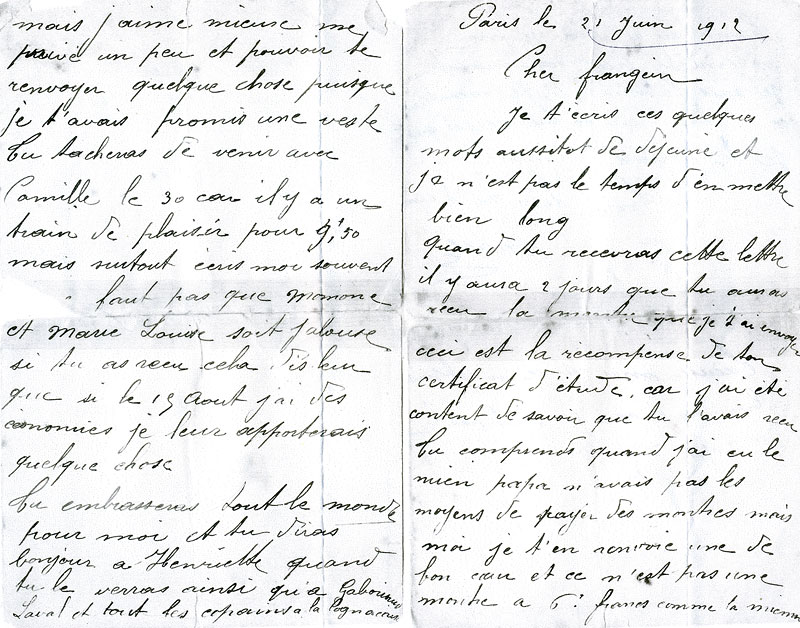 Paris le 21 Juin 1912
Cher frangin
Je t'écris ces quelques
mots aussitot de déjeuné et
je n'est pas le temps d'én mettre
bien long
quand tu recevras cette lettre
il y aura 2 jours que tu auras
recu la montre que je t'ai envoyer
ceci est la récompense de ton
certificat d'étude, car j'ai été
content de savoir que tu l'avais recu
tu comprends quand j'ai eu le
mien papa n'avais pas les
moyens de payer des montres mais
moi je t'en renvoie une de
bon cœur et ce n'est pas une
montre a 6f francs comme la mienne
mais j'aime mieux me
privé un peu et pouvoir te
renvoyer quelque chose puisque
je t'avais promis une veste
tu tacheras de venir avec
Camille le 30 car il y a un
train de plaisir pour 9f,50
mais surtout écris moi souvent
faut pas que Monone
et Marie Louise soit jalouse
si tu as recu cela dis leur
que si le 15 Aout j'ai des
économies je leur apporterais
quelque chose
Tu embrasseras tout le monde
pour moi et tu diras
bonjour a Henriette quand
tu le verras ainsi qu'a
Laval et tout les copains a la